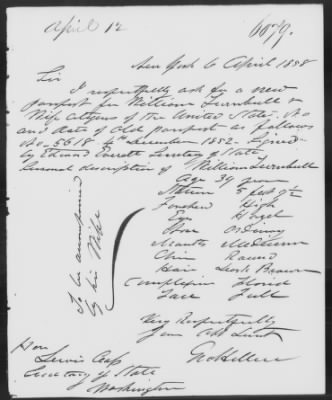 April 12
6679.
New York 6 April 1858
Sir
I respectfully ask for a new
passport for William Turnbull &
Wife Citizens of the United States. No
and date of Old passport as follows
No. 5618 4th December 1852. Signed
by Edward Everett Secretary of State
Personal description of William Turnbull
Age 39 years
Stature 5 feet 9 1/2
Forehead High
Eyes Hazel
Nose Ordinary
Mouth Medium
Chin Round
Hair Dark Brown
Complexion Florid
Face Full
To be accompanied
by his Wife
Very Respectfully
Your Obt Servt
Hon
Lewis Cass
Secretary of State
Washington